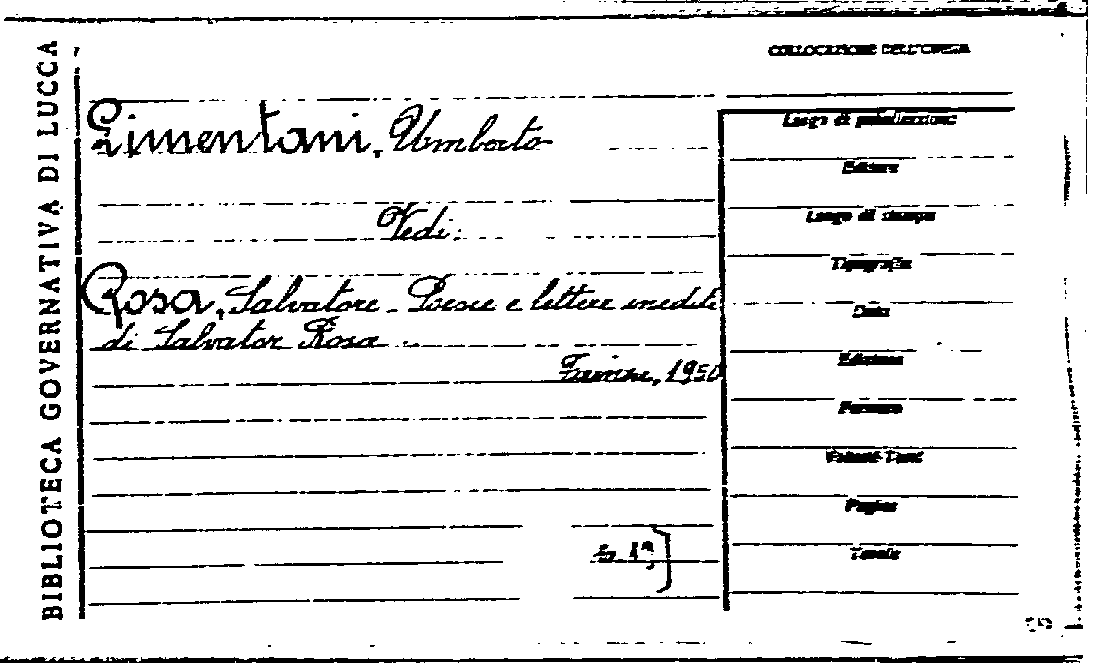 BIBLIOTECA GOVERNATIVA DI LUCCA
COLLOCAZIONE DELL'OPERA
Limentani, Umberto
Vedi:
Rosa, Salvatore - Poesie e lettere inedite
di Salvator Rosa
Firenze, 1950
Luogo di pubblicazione
Editore
Luogo di stampa
Tipografia
Data
Edizione
Formato
Volumi-Tomi
Pagine
Tavole